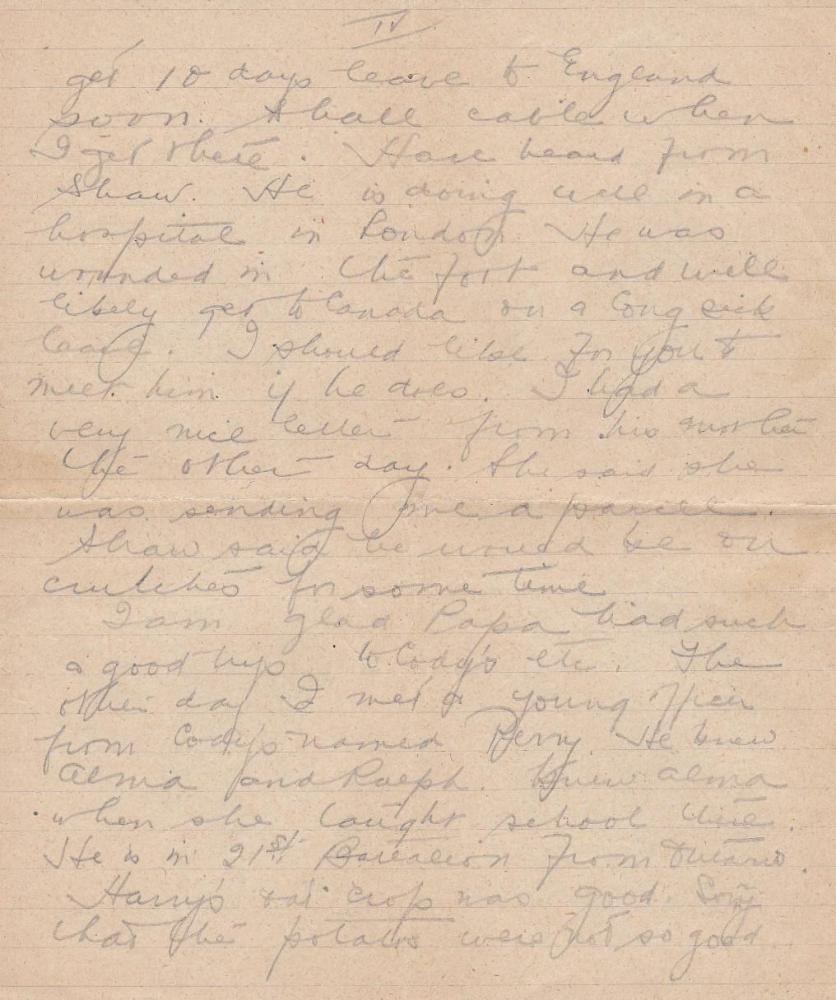 IV
get 10 days leave to England
soon. Shall cable when
I get there. Have heard from
Shaw. He is doing well in a
hospital in London. He was
wounded in the foot and will
likely get to Canada on a long sick
leave. I should like for you to
meet him if he does. I had a
very nice letter from his mother
the other day. She said she
was sending me a parcel.
Shaw said he would be on
crutches for some time
I am glad Papa had such
a good trip to Cody's etc. The
other day I met a young officer
from Cody's named Perry. He knew
Alma and Ralph. Knew Alma
when she taught school there.
He is in 21st Battalion from Ontario.
Harry's oat crop was good. Sorry
that the potatoes were not so good